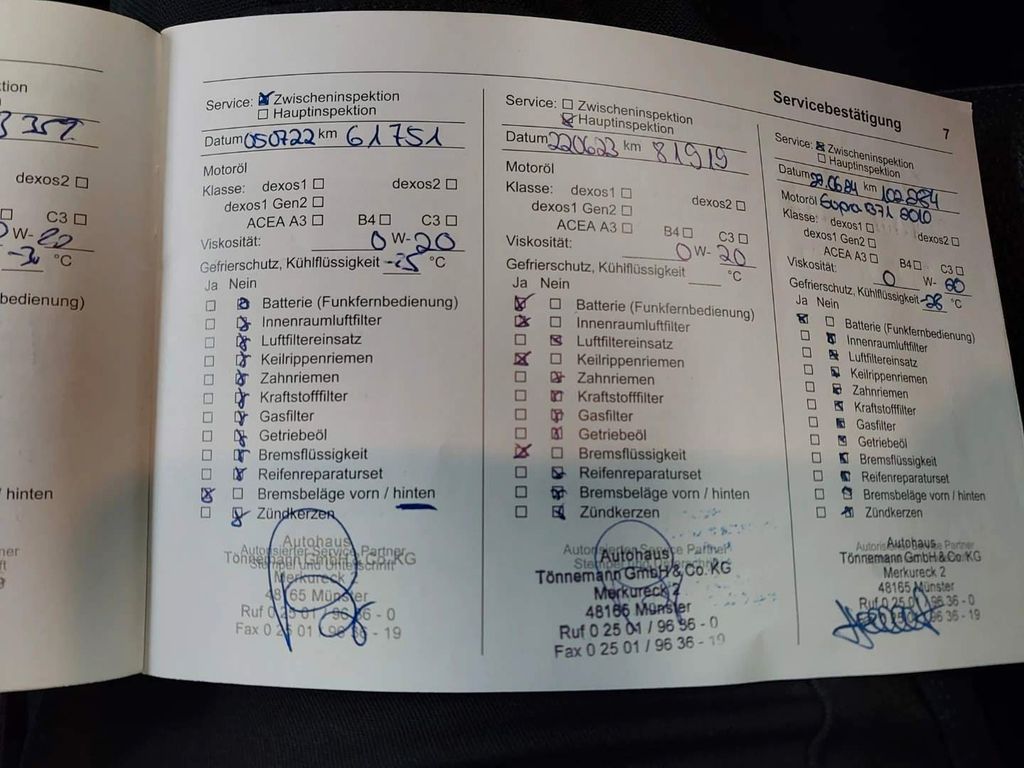 Servicebestätigung 7
tion
dexos2
C3
W-
°C
bedienung)
/ hinten
Service: Zwischeninspektion
Hauptinspektion
Datum 050722 km 61751
Motoröl
Klasse: dexos1 dexos2
dexos1 Gen2
ACEA A3 B4 C3
Viskosität: 0 W- 20
Gefrierschutz, Kühlflüssigkeit -25 °C
Ja Nein
Batterie (Funkfernbedienung)
Innenraumluftfilter
Luftfiltereinsatz
Keilrippenriemen
Zahnriemen
Kraftstofffilter
Gasfilter
Getriebeöl
Bremsflüssigkeit
Reifenreparaturset
Bremsbeläge vorn / hinten
Zündkerzen
Autorisierter Service Partner
Stempel und Unterschrift
Autohaus
Tönnemann GmbH & Co. KG
Merkureck 2
48165 Münster
Ruf 0 25 01 / 96 36 - 0
Fax 0 25 01 / 96 36 - 19
Service: Zwischeninspektion
Hauptinspektion
Datum 220623 km 81919
Motoröl
Klasse: dexos1 dexos2
dexos1 Gen2
ACEA A3 B4 C3
Viskosität: 0 W- 20
Gefrierschutz, Kühlflüssigkeit °C
Ja Nein
Batterie (Funkfernbedienung)
Innenraumluftfilter
Luftfiltereinsatz
Keilrippenriemen
Zahnriemen
Kraftstofffilter
Gasfilter
Getriebeöl
Bremsflüssigkeit
Reifenreparaturset
Bremsbeläge vorn / hinten
Zündkerzen
Autorisierter Service Partner
Autohaus
Tönnemann GmbH & Co. KG
Merkureck 2
48165 Münster
Ruf 0 25 01 / 96 36 - 0
Fax 0 25 01 / 96 36 - 19
Service: Zwischeninspektion
Hauptinspektion
Datum km 102284
Motoröl
Klasse: dexos1 dexos2
dexos1 Gen2
ACEA A3 B4 C3
Viskosität: 0 W-
Gefrierschutz, Kühlflüssigkeit °C
Ja Nein
Batterie (Funkfernbedienung)
Innenraumluftfilter
Luftfiltereinsatz
Keilrippenriemen
Zahnriemen
Kraftstofffilter
Gasfilter
Getriebeöl
Bremsflüssigkeit
Reifenreparaturset
Bremsbeläge vorn / hinten
Zündkerzen
Autorisierter Service Partner
Autohaus
Tönnemann GmbH & Co. KG
Merkureck 2
48165 Münster
Ruf 0 25 01 / 96 36 - 0
96 36 - 19